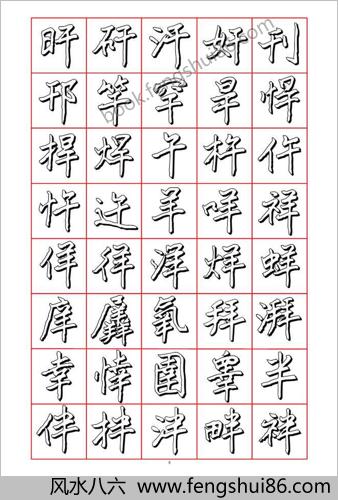 旰矸汗奸刊
邗竿罕旱悍
捍焊午杵仵
忤迕羊咩祥
佯徉洋烊蛘
庠羼氧拜湃
幸悻圉睾半
伴拌泮畔袢
book.fengshui86.com
风水八六 www.fengshui86.com